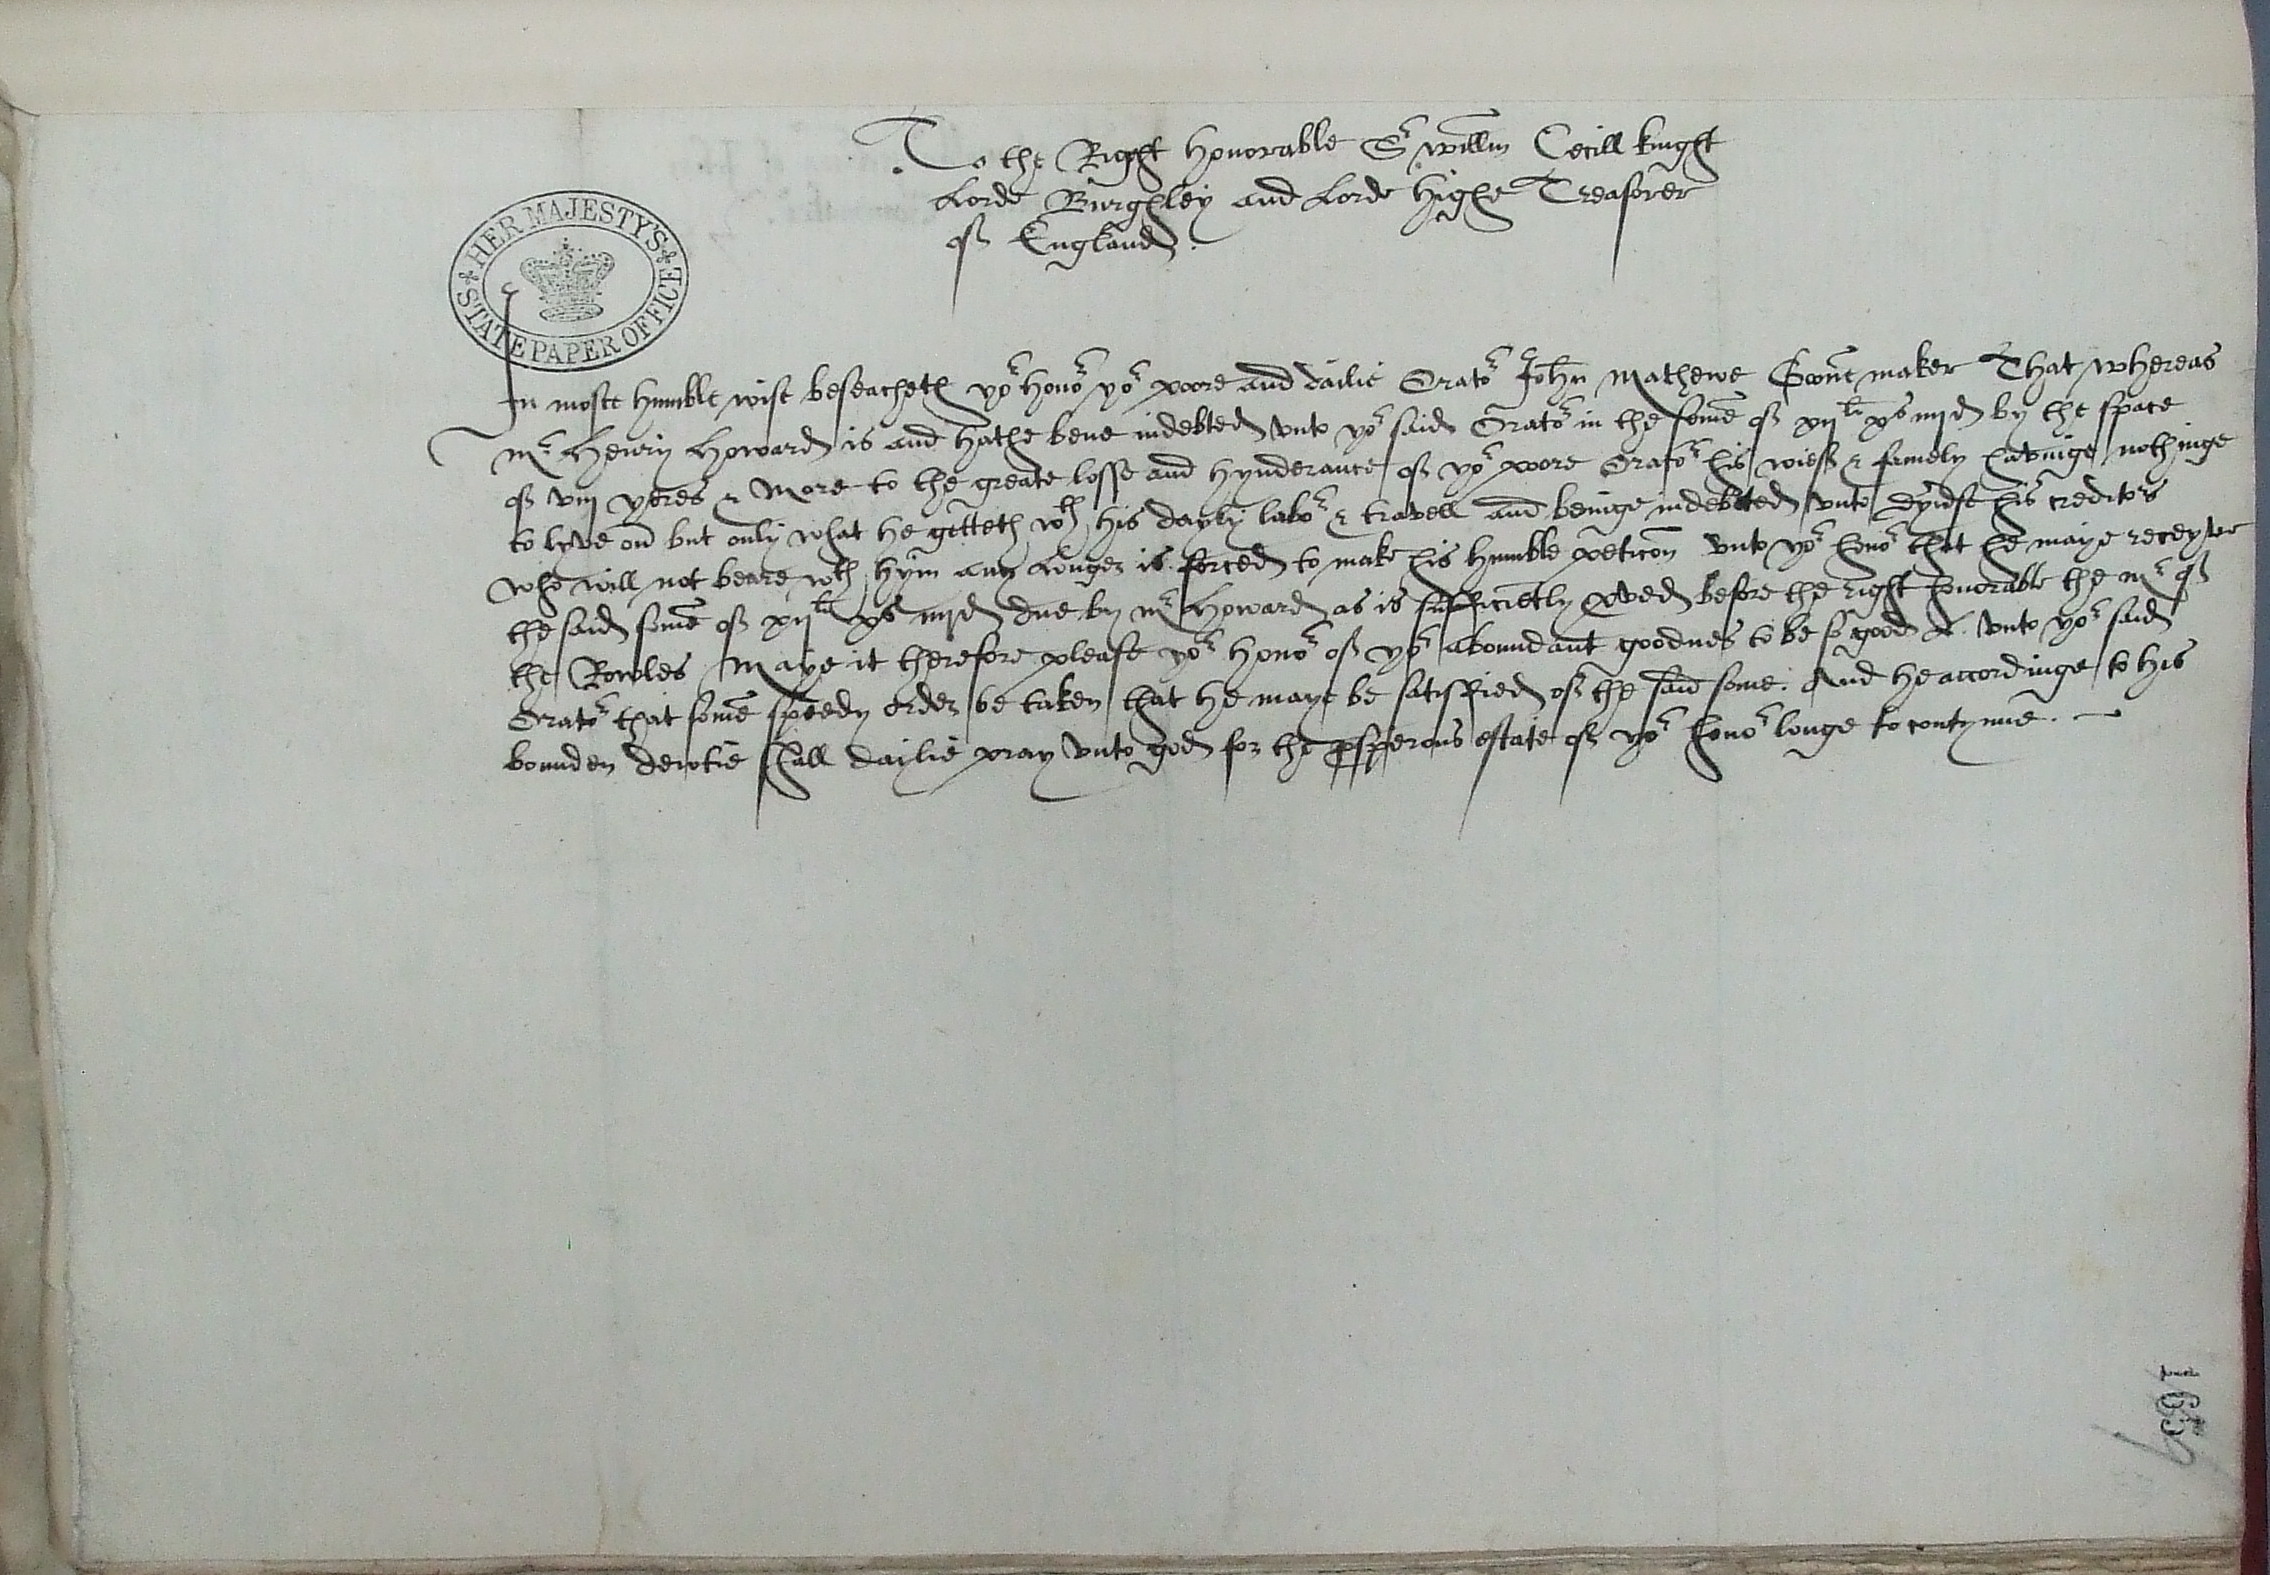 To the Right Honorable Sr Willm Cecill knight
Lorde Burghley and Lorde highe Treasorer
of England.
HER MAJESTY'S STATE PAPER OFFICE
In moste humble wise beseacheth yor Honor yor poore and dailie Orator John Mathewe Gonne maker That whereas
Mr Henry Howard is and hathe bene indebted unto yor said Orator in the some of xijli xs iiijd by the space
of viij yeres & More to the greate losse and hynderance of yor poore Orator his wief & famely havinge nothinge
to lyve on but only what he getteth wth his dayly labor & travell and beinge indebted unto his creditors
who will not beare wth hym any longer is forced to make his humble peticon unto yor honor that he maye receyve
the said some of xijli xs iiijd due by Mr Howard as is sufficiently pved before the right honorable the Mr of
the Rowles Maye it therefore please yor Honor of yor aboundant goodnes to be so good unto yor said
Orator that some speedy order be taken that he maye be satisfied of the said some. And he accordinge to his
bounden dewtie shall dailie pray unto god for the psperous estate of yor honor longe to contynue.
163